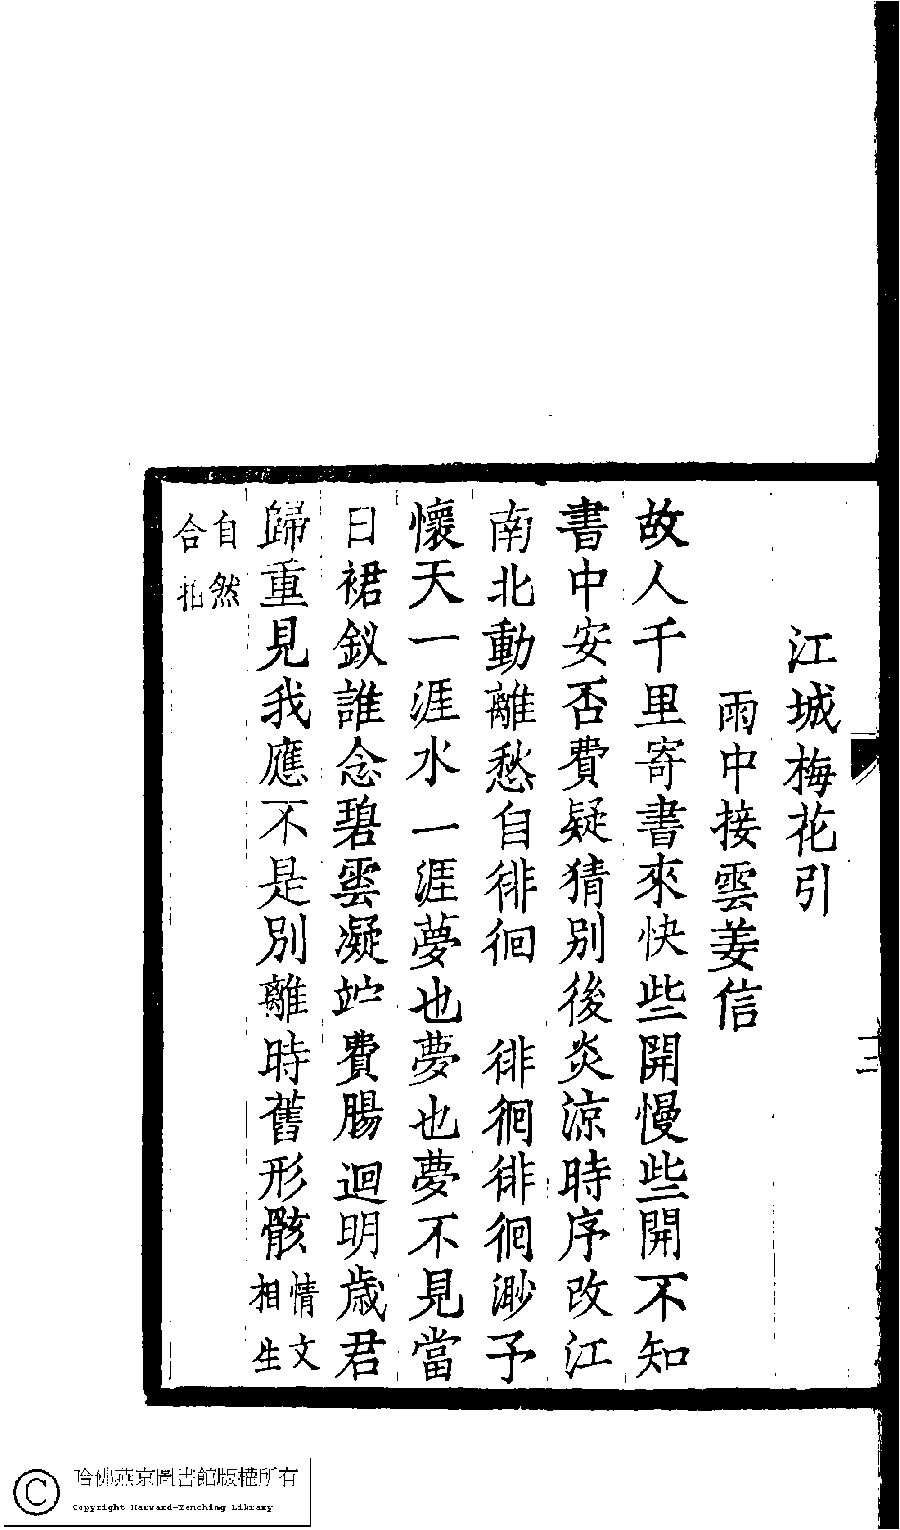 江城梅花引
雨中接雲姜信
故人千里寄書來快些開慢些開不知
書中安否費疑猜別後炎涼時序改江
南北動離愁自徘徊　徘徊徘徊渺予
懷天一涯水一涯夢也夢也夢不見當
日裙釵誰念碧雲凝竚費腸迴明歲君
歸重見我應不是別離時舊形骸情文相生
自然合拍
三
哈佛燕京圖書館版權所有
Copyright Harvard-Yenching Library